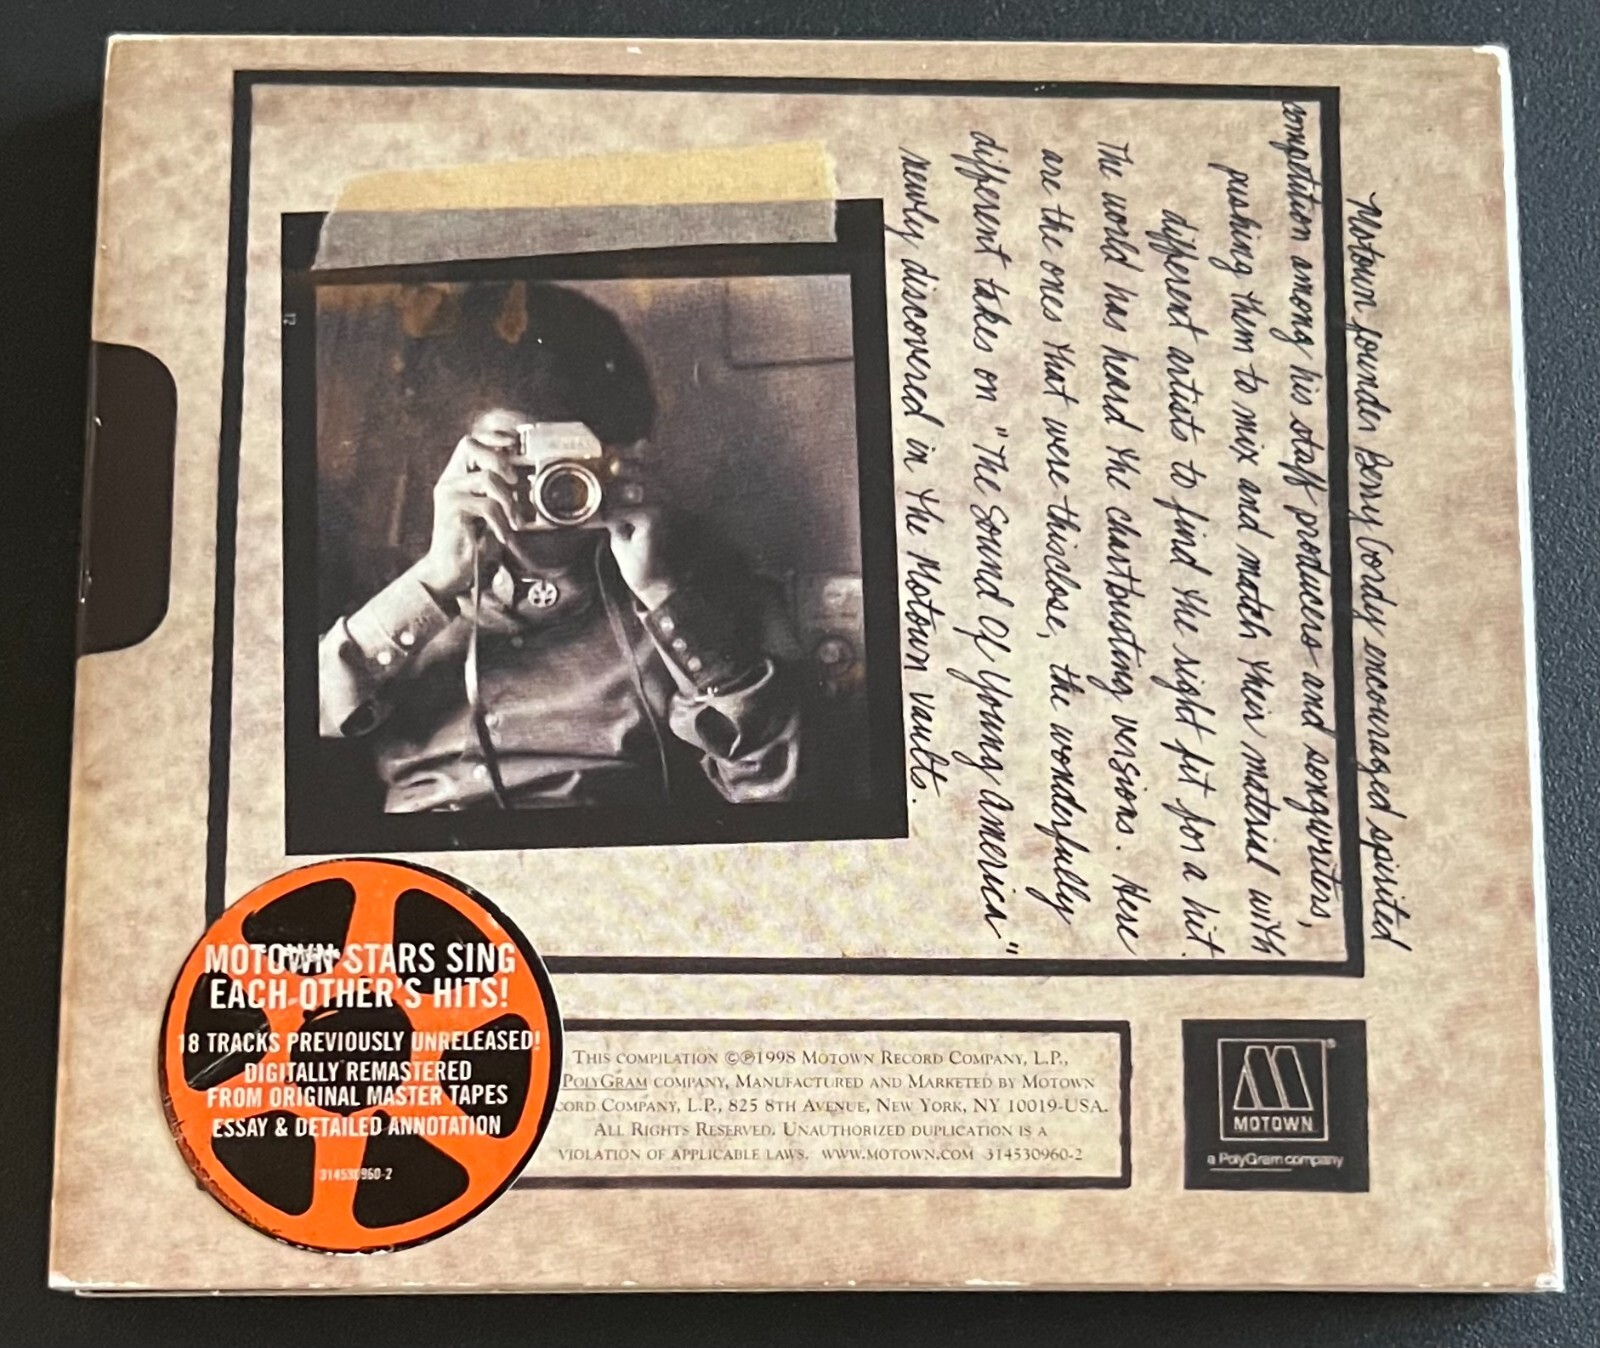 Motown founder Berry Gordy encouraged spirited
competition among his staff producers and songwriters,
pushing them to mix and match their material with
different artists to find the right fit for a hit.
The world has heard the chartbusting versions. Here
are the ones that were thisclose, the wonderfully
different takes on "The Sound Of Young America"
newly discovered in the Motown vaults.
12
MOTOWN STARS SING
EACH OTHER'S HITS!
18 TRACKS PREVIOUSLY UNRELEASED!
DIGITALLY REMASTERED
FROM ORIGINAL MASTER TAPES
ESSAY & DETAILED ANNOTATION
314530960-2
THIS COMPILATION ©℗1998 MOTOWN RECORD COMPANY, L.P.,
POLYGRAM COMPANY, MANUFACTURED AND MARKETED BY MOTOWN
CORD COMPANY, L.P., 825 8TH AVENUE, NEW YORK, NY 10019-USA.
ALL RIGHTS RESERVED. UNAUTHORIZED DUPLICATION IS A
VIOLATION OF APPLICABLE LAWS. WWW.MOTOWN.COM 314530960-2
MOTOWN®
a PolyGram company